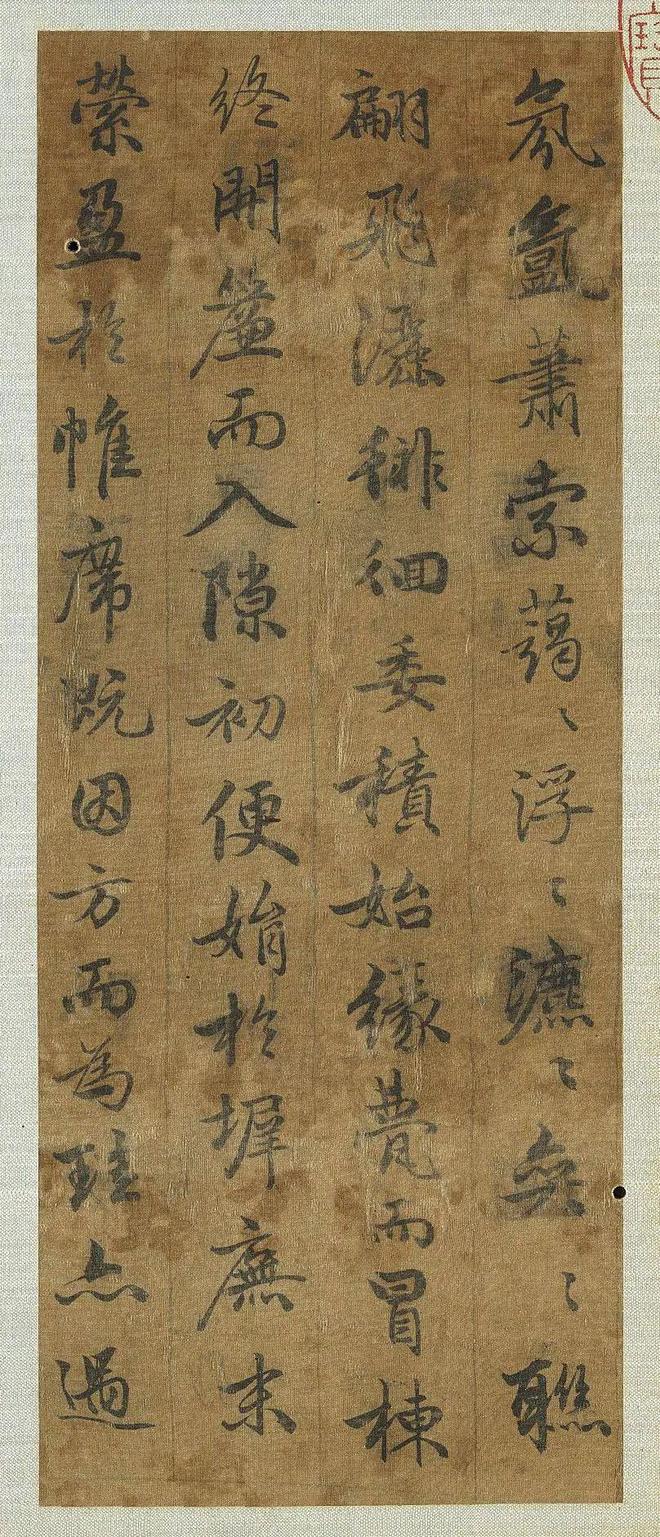 氛氳蕭索藹〻浮〻瀌〻弈〻聯
翩飛灑徘徊委積始緣甍而冒棟
終開簾而入隙初便娟於墀廡末
縈盈於帷席既因方而為珪亦遇